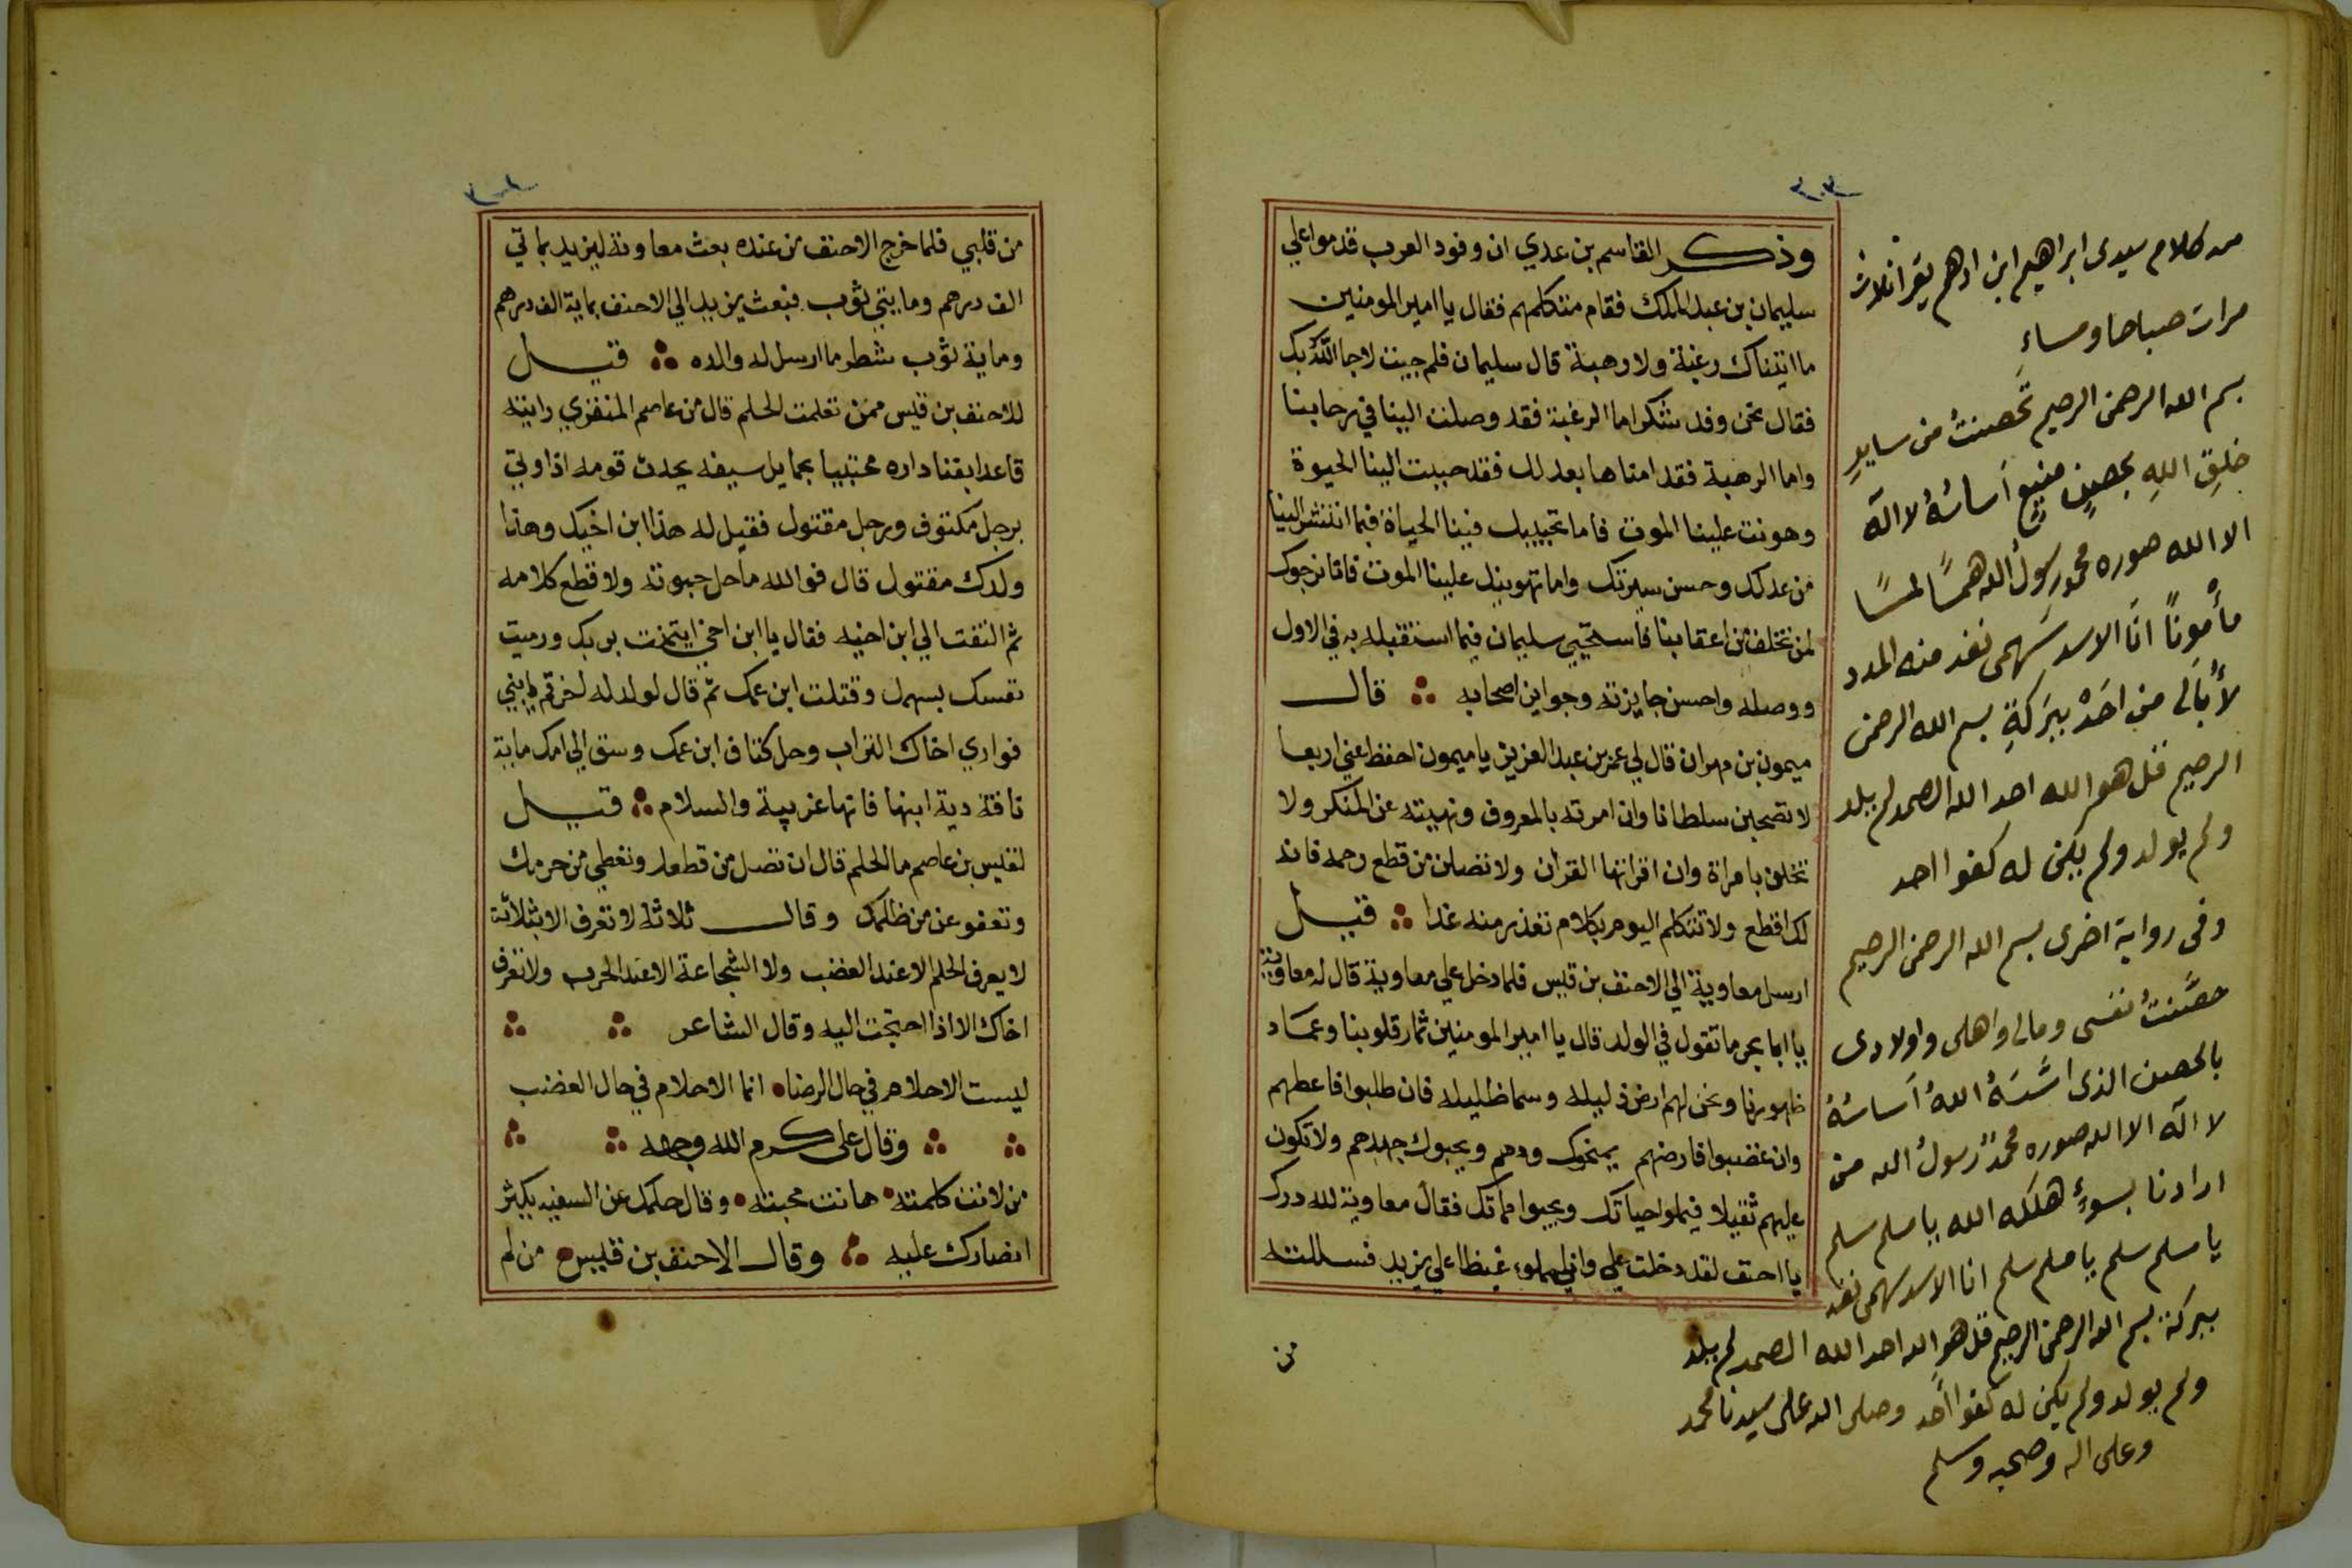 ٢٠٣
وذكر القاسم بن عدي ان وفود العرب قدموا علي
سليمان بن عبد الملك فقام متكلمهم فقال يا امير المومنين
ما اتيناك رغبة ولا رهبة قال سليمان فلم جيت لا جا الله بك
فقال نحن وفد شكر اما الرغبة فقد وصلت الينا في رحابنا
واما الرهبة فقد امناها بعدلك فقد حببت الينا الحيوة
وهونت علينا الموت فاما تحبيبك فينا الحياة فبما انتشر الينا
من عدلك وحسن سيرتك واما تهوينك علينا الموت فانا نرجوك
لمن نخلف من اعقابنا فاستحيي سليمان فيما استقبله به في الاول
ووصله واحسن جايزته وجواين اصحابه قال
ميمون بن مهران قال لي عمر بن عبد العزيز يا ميمون احفظ عني اربعا
لا تصحبن سلطانا وان امرته بالمعروف ونهيته عن المنكر ولا
تخلون بامراة وان اقراتها القران ولا تصلن من قطع رحمه فانه
لك اقطع ولا تتكلم اليوم بكلام تعذر منه غدا قيل
ارسل معاوية الي الاحنف بن قيس فلما دخل علي معاوية قال له معاوية
يا ابا بحر ما تقول في الولد قال يا امير المومنين ثمار قلوبنا وعماد
ظهورنا ونحن لهم ارض ذليله وسما ظليله فان طلبوا فاعطهم
وان غضبوا فارضهم يمنحوك ودهم ويحبوك جهدهم ولا تكون
عليهم ثقيلا فيملوا حياتك ويحبوا مماتك فقال معاوية لله درك
يا احنف لقد دخلت علي واني مملوء غيظا علي يزيد فسللته
من
من كلام سيدى ابراهيم ابن ادهم يقرا ثلاث
مرات صباحا ومساء
بسم الله الرحمن الرحيم تحصنت من ساير
خلق الله بحصن منيع اساسه لا اله
الا الله صوره محمد رسول الله همسا لمسا
مأمونا انا الاسد سهمى نفذ منه المدد
لا أبالى من احد ببركة بسم الله الرحمن
الرحيم قل هو الله احد الله الصمد لم يلد
ولم يولد ولم يكن له كفوا احد
وفى رواية اخرى بسم الله الرحمن الرحيم
حصنت نفسى ومالى واهلى واولادى
بالحصن الذى اسسه الله أساسه
لا اله الا الله صوره محمد رسول الله من
ارادنا بسوء هلكه الله يا مسلم سلم
يا مسلم سلم يا مسلم سلم انا الاسد سهمى نفذ
ببركة بسم الله الرحمن الرحيم قل هو الله احد الله الصمد لم يلد
ولم يولد ولم يكن له كفوا احد وصلى الله على سيدنا محمد
وعلى اله وصحبه وسلم
من قلبي فلما خرج الاحنف من عنده بعث معاوية ليزيد بمايتي
الف درهم ومايتي ثوب فبعث يزيد الي الاحنف بماية الف درهم
وماية ثوب شطر ما ارسل له والده قيل
للاحنف بن قيس ممن تعلمت الحلم قال من عاصم المنقري رايته
قاعدا بفنا داره محتبيا بحمايل سيفه يحدث قومه اذ اوتي
برجل مكتوف ورجل مقتول فقيل له هذا ابن اخيك وهذا
ولدك مقتول قال فوالله ما حل حبوته ولا قطع كلامه
ثم التفت الي ابن اخيه فقال يا ابن اخي بربك ورميت
نفسك بسهمك وقتلت ابن عمك ثم قال لولد له اخر قم يا بني
فواري اخاك التراب وحل كتاف ابن عمك وسق الي امك ماية
ناقة دية ابنها فانها غريبة والسلام قيل
لقيس بن عاصم ما الحلم قال ان تصل من قطعك وتعطي من حرمك
وتعفو عن من ظلمك وقال ثلاثة لا تعرف الا بثلاثة
لا يعرف الحلم الا عند الغضب ولا الشجاعة الا عند الحرب ولا تعرف
اخاك الا اذا احتجت اليه وقال الشاعر
ليست الاحلام في حال الرضا انما الاحلام في حال الغضب
وقال على كرم الله وجهه
من لانت كلمته هانت محبته وقال حلمك عن السفيه يكثر
انصارك عليه وقال الاحنف بن قيس من لم